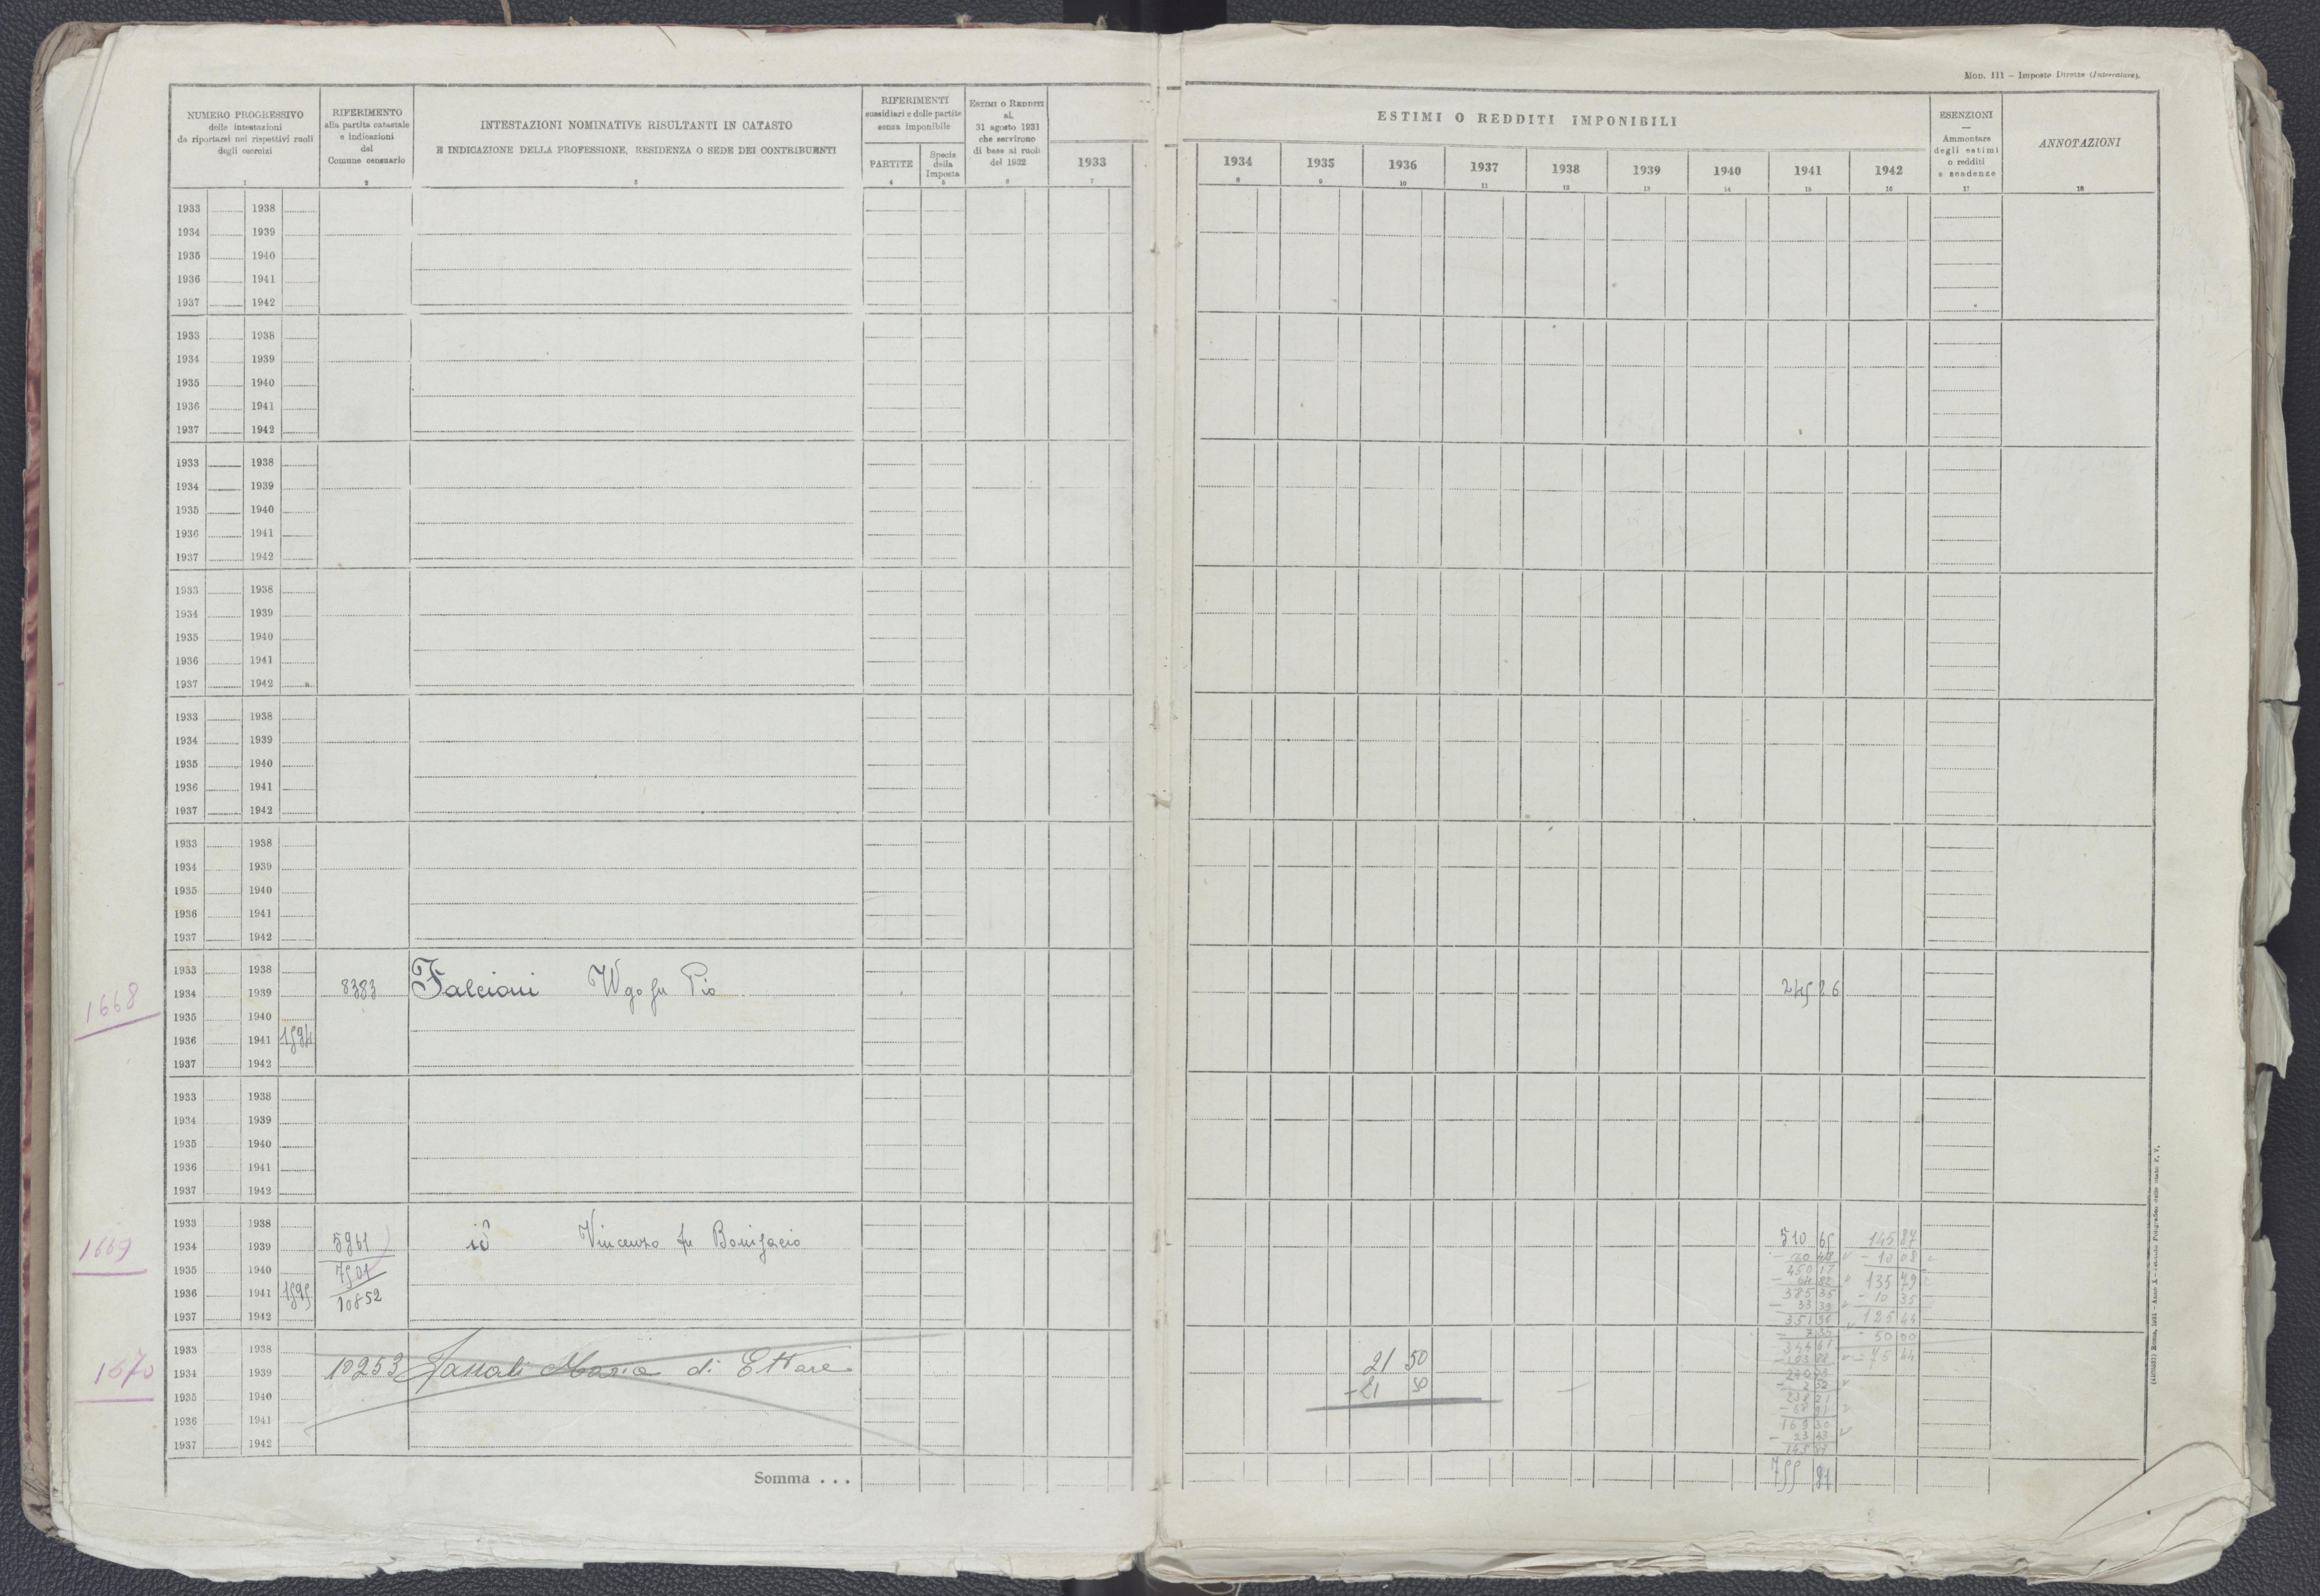 Mod. 111 – Imposte Dirette (Intercalare).
NUMERO PROGRESSIVO
delle intestazioni
da riportarsi nei rispettivi ruoli
degli esercizi
1
RIFERIMENTO
alla partita catastale
e indicazioni
del
Comune censuario
2
INTESTAZIONI NOMINATIVE RISULTANTI IN CATASTO
E INDICAZIONE DELLA PROFESSIONE, RESIDENZA O SEDE DEI CONTRIBUENTI
3
RIFERIMENTI
sussidiari e delle partite
senza imponibile
PARTITE
4
Specie
della
Imposta
5
Estimi o Redditi
al
31 agosto 1931
che servirono
di base ai ruoli
del 1932
6
1933
7
ESTIMI O REDDITI IMPONIBILI
1934 1935 1936 1937 1938 1939 1940 1941 1942
8 9 10 11 12 13 14 15 16
ESENZIONI
—
Ammontare
degli estimi
o redditi
e scadenze
17
ANNOTAZIONI
18
1933 1938
1934 1939
1935 1940
1936 1941
1937 1942
1933 1938
1934 1939
1935 1940
1936 1941
1937 1942
1933 1938
1934 1939
1935 1940
1936 1941
1937 1942
1933 1938
1934 1939
1935 1940
1936 1941
1937 1942
1933 1938
1934 1939
1935 1940
1936 1941
1937 1942
1933 1938
1934 1939
1935 1940
1936 1941
1937 1942
1668
1933 1938
1934 1939 8383 Falcioni Ugo fu Pio 245 26
1935 1940
1936 1941 1594
1937 1942
1933 1938
1934 1939
1935 1940
1936 1941
1937 1942
1669
1933 1938
1934 1939 5961 id Vincenzo fu Bonifacio 510 65 145 87
1935 1940 7501 - 60 48 - 10 08
450 17 135 79
1936 1941 1595 10852 - 64 82 - 10 35
385 35 125 44
1937 1942 - 33 39 - 50 00
351 96 75 44
1670
1933 1938
1934 1939 10253 Maria di Ettore 21 50
1935 1940 - 21 50
1936 1941
1937 1942
169 30
- 23 43
145 87
Somma . . . 755 91